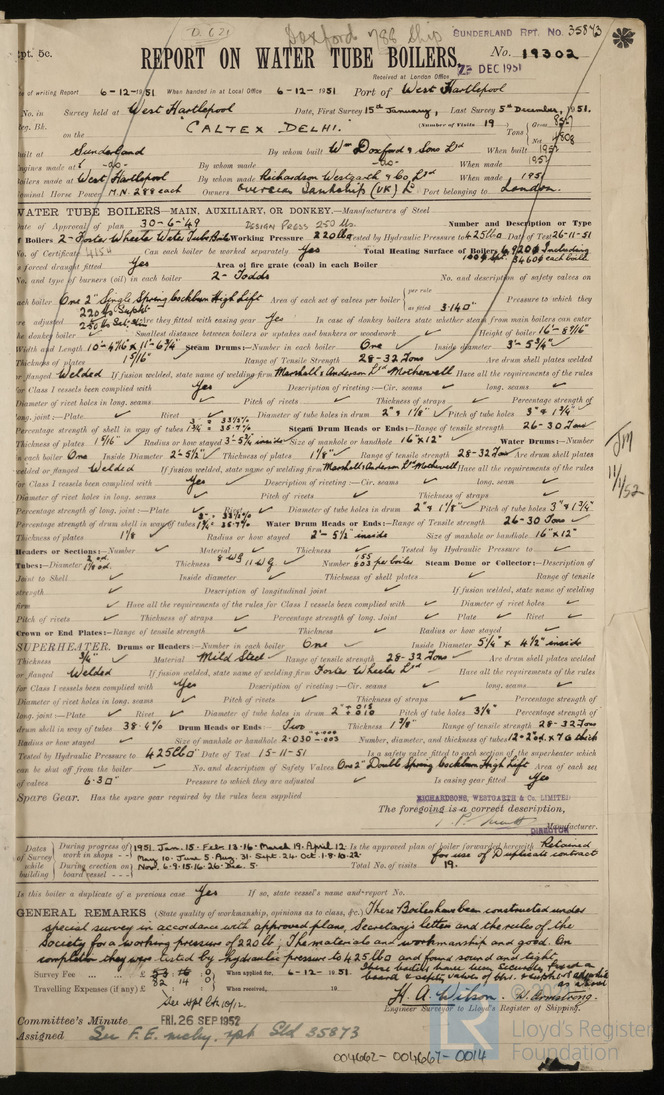 D. (2)
Doxford 788 ship
SUNDERLAND RPT. NO. 35873
pt. 5c.
REPORT ON WATER TUBE BOILERS.
No. 19302
Received at London Office
DEC 1951
of writing Report 6-12-1951 When handed in at Local Office 6-12-1951 Port of West Hartlepool
No. in Survey held at West Hartlepool Date, First Survey 15th January, Last Survey 5th December, 1951.
Reg. Bk. (Number of Visits 19)
on the CALTEX DELHI. Tons Gross Net
built at Sunderland By whom built Wm Doxford & Sons Ltd When built 1952
Engines made at -do- By whom made -do- When made 1952
Boilers made at West Hartlepool By whom made Richardson Westgarth & Co Ltd When made 195
Nominal Horse Power M.N. 288 each Owners Overseas Tankship (UK) Ld Port belonging to London.
WATER TUBE BOILERS—MAIN, AUXILIARY, OR DONKEY.—Manufacturers of Steel
Date of Approval of plan 30-6-'49 DESIGN PRESS 250 lbs. Number and Description or Type
of Boilers 2-Foster Wheeler Water Tube Boilers Working Pressure 220 lbs Tested by Hydraulic Pressure to 425 lbs Date of Test 26-11-51
No. of Certificate 4154 Can each boiler be worked separately Yes Total Heating Surface of Boilers 6920 Including
Is forced draught fitted Yes Area of fire grate (coal) in each Boiler 3460 each boiler
No. and type of burners (oil) in each boiler 2- Todds No. and description of safety valves on
each boiler One 2" Single Spring Cockburn High Lift Area of each set of valves per boiler per rule as fitted 3.14 Pressure to which they
are adjusted 220 lbs Suphtr 250 lbs Sat. Stm Are they fitted with easing gear Yes In case of donkey boilers state whether steam from main boilers can enter
the donkey boiler Smallest distance between boilers or uptakes and bunkers or woodwork Height of boiler 16'-8 7/16"
Width and Length 10'-4 7/16" x 11'-6 3/4" Steam Drums:—Number in each boiler One Inside diameter 3'-5 3/4"
Thickness of plates 1 5/16" Range of Tensile Strength 28-32 Tons Are drum shell plates welded
or flanged Welded If fusion welded, state name of welding firm Marshall & Anderson Ltd Motherwell Have all the requirements of the rules
for Class I vessels been complied with Yes Description of riveting:—Cir. seams long. seams
Diameter of rivet holes in long. seams Pitch of rivets Thickness of straps Percentage strength of
long. joint:—Plate Rivet Diameter of tube holes in drum 2" & 1 1/8" Pitch of tube holes 3" & 1 3/4"
Percentage strength of shell in way of tubes 3" = 33 1/3% 1 3/4" = 35.7% Steam Drum Heads or Ends:—Range of tensile strength 26-30 Tons
Thickness of plates 1 5/16" Radius or how stayed 3'-5 3/4 inside Size of manhole or handhole 16"x12" Water Drums:—Number
in each boiler One Inside Diameter 2'-5 1/2" Thickness of plates 1 1/8" Range of tensile strength 28-32 Tons Are drum shell plates
welded or flanged Welded If fusion welded, state name of welding firm Marshall & Anderson Ltd Motherwell Have all the requirements of the rules
for Class I vessels been complied with Yes Description of riveting:—Cir. seams long. seam
Diameter of rivet holes in long. seams Pitch of rivets Thickness of straps
Percentage strength of long. joint:—Plate Rivet Diameter of tube holes in drum 2" & 1 1/8" Pitch of tube holes 3" & 1 3/4"
Percentage strength of drum shell in way of tubes 3" = 33 1/3% 1 3/4" = 35.7% Water Drum Heads or Ends:—Range of Tensile strength 26-30 Tons
Thickness of plates 1 1/8 Radius or how stayed 2'-5 1/2" inside Size of manhole or handhole 16"x12"
Headers or Sections:—Number Material Thickness Tested by Hydraulic Pressure to
Tubes:—Diameter 2" od. 1 1/8 od. Thickness 8 WG 11 WG Number 155 803 per boiler Steam Dome or Collector:—Description of
Joint to Shell Inside diameter Thickness of shell plates Range of tensile
strength Description of longitudinal joint If fusion welded, state name of welding
firm Have all the requirements of the rules for Class I vessels been complied with Diameter of rivet holes
Pitch of rivets Thickness of straps Percentage strength of long. joint Plate Rivet
Crown or End Plates:—Range of tensile strength Thickness Radius or how stayed
SUPERHEATER. Drums or Headers:—Number in each boiler One Inside Diameter 5 1/4" x 4 1/2" inside
Thickness 3/4" Material Mild Steel Range of tensile strength 28-32 Tons Are drum shell plates welded
or flanged Welded If fusion welded, state name of welding firm Foster Wheeler Ltd Have all the requirements of the rules
for Class I vessels been complied with Yes Description of riveting:—Cir. seams long. seams
Diameter of rivet holes in long. seams Pitch of rivets Thickness of straps Percentage strength of
long. joint—Plate Rivet Diameter of tube holes in drum 2" +.015 +.010 Pitch of tube holes 3 1/4" Percentage strength of
drum shell in way of tubes 38.4% Drum Heads or Ends:— Two Thickness 1 3/8" Range of tensile strength 28-32 Tons
Radius or how stayed Size of manhole or handhole 2.030 +.000 -.003 Number, diameter, and thickness of tubes 12-2" od. x 7G thick
Tested by Hydraulic Pressure to 425 lbs Date of Test 15-11-51 Is a safety valve fitted to each section of the superheater which
can be shut off from the boiler No. and description of Safety Valves One 2" Double Spring Cockburn High Lift Area of each set
of valves 6.3 Pressure to which they are adjusted Is easing gear fitted Yes
Spare Gear. Has the spare gear required by the rules been supplied
RICHARDSONS, WESTGARTH & Co. LIMITED
The foregoing is a correct description,
DIRECTOR Manufacturer.
Dates of Survey while building During progress of work in shops -- 1951. Jan. 15. Feb. 13.16. March 19. April 12. May 10. June 5. Aug. 31. Sept. 24. Oct. 1.8.10.22. Is the approved plan of boiler forwarded herewith Retained for use of Duplicate contract
During erection on board vessel --- Nov. 6.9.15.16.26. Dec. 5. Total No. of visits 19.
Is this boiler a duplicate of a previous case Yes If so, state vessel's name and report No.
GENERAL REMARKS (State quality of workmanship, opinions as to class, &c.) These Boilers have been constructed under
special survey in accordance with approved plans, Secretary's letter and the rules of the
Society for a working pressure of 220 lb; The materials and workmanship are good. On
completion they were tested by hydraulic pressure to 425 lbs and found sound and tight.
These boilers have been securely fixed
Survey Fee ... £ When applied for, 6-12-1951.
Travelling Expenses (if any) £ When received, 19
H. A. Wilson. H. Armstrong.
Engineer Surveyor to Lloyd's Register of Shipping.
Committee's Minute FRI. 26 SEP 1952
Assigned See F.E. mchy. rpt Sld 35873
JM
11/1/52
Lloyd's Register
Foundation
004662-004667-0014